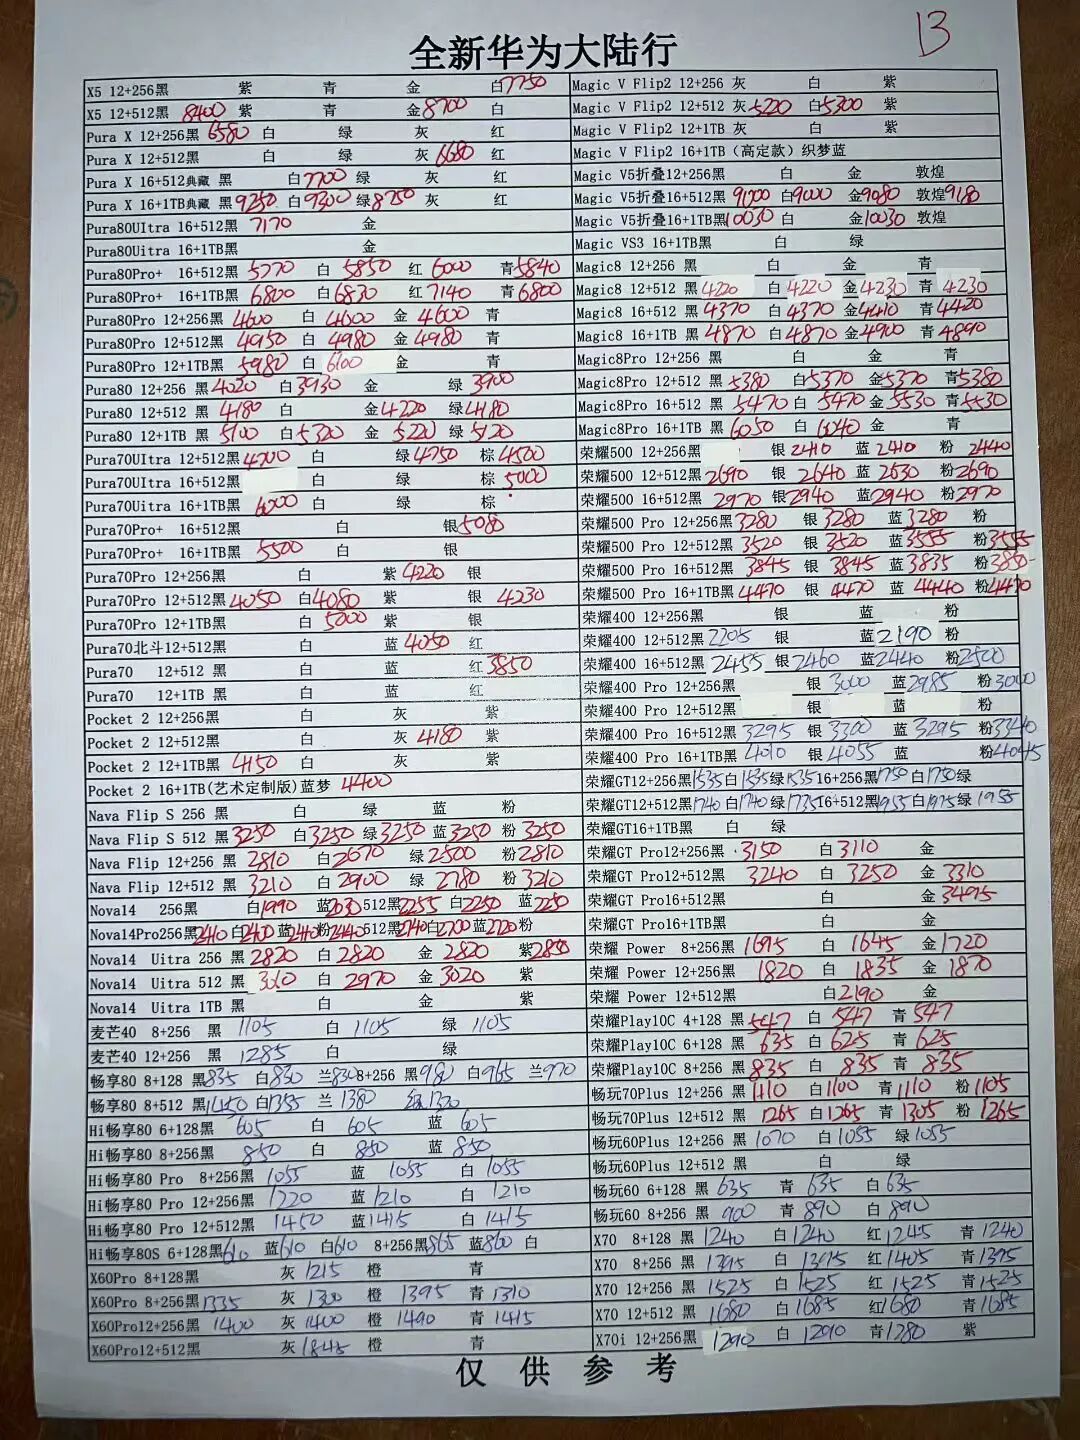 13
全新华为大陆行
X5 12+256黑 紫 青 金 白7750
X5 12+512黑 8400 紫 青 金8700 白
Pura X 12+256黑 6580 白 绿 灰 红
Pura X 12+512黑 白 绿 灰6680 红
Pura X 16+512典藏 黑 白7700 绿 灰 红
Pura X 16+1TB典藏 黑9250 白9300 绿8750 灰 红
Pura80UItra 16+512黑 7170 金
Pura80UItra 16+1TB黑 金
Pura80Pro+ 16+512黑 5770 白 5850 红 6000 青5840
Pura80Pro+ 16+1TB黑 6800 白 6830 红 7140 青 6800
Pura80Pro 12+256黑 4600 白 4600 金 4600 青
Pura80Pro 12+512黑 4950 白 4980 金 4980 青
Pura80Pro 12+1TB黑 5980 白 6100 金 青
Pura80 12+256 黑4020 白3930 金 绿 3900
Pura80 12+512 黑 4180 白 金4220 绿4180
Pura80 12+1TB 黑 5100 白5320 金 5220 绿5120
Pura70UItra 12+512黑4700 白 绿4750 棕4500
Pura70UItra 16+512黑 白 绿 棕 5000
Pura70Uitra 16+1TB黑 6000 白 绿 棕
Pura70Pro+ 16+512黑 白 银5080
Pura70Pro+ 16+1TB黑 5500 白 银
Pura70Pro 12+256黑 白 紫4220 银
Pura70Pro 12+512黑4050 白4080 紫 银 4230
Pura70Pro 12+1TB黑 白 5000 紫 银
Pura70北斗12+512黑 白 蓝 4050 红
Pura70 12+512 黑 白 蓝 红3850
Pura70 12+1TB 黑 白 蓝 红
Pocket 2 12+256黑 白 灰 紫
Pocket 2 12+512黑 白 灰 4180 紫
Pocket 2 12+1TB黑 4150 白 灰 紫
Pocket 2 16+1TB(艺术定制版)蓝梦 4400
Nava Flip S 256 黑 白 绿 蓝 粉
Nava Flip S 512 黑3250 白3250 绿3250 蓝3250 粉 3250
Nava Flip 12+256 黑 2810 白2670 绿2500 粉2810
Nava Flip 12+512 黑 3210 白 2900 绿 2780 粉 3210
Nova14 256黑 白1990 蓝2030 512黑2255 白2250 蓝2250
Nova14Pro256黑2410 白2400 蓝2410 粉2440 512黑2740 白2700 蓝2720 粉
Nova14 Uitra 256 黑 2820 白 2820 金 2820 紫2850
Nova14 Uitra 512 黑 3010 白 2970 金 3020 紫
Nova14 Uitra 1TB 黑 白 金 紫
麦芒40 8+256 黑 1105 白 1105 绿 1105
麦芒40 12+256 黑 1285 白 绿
畅享80 8+128 黑835 白830 兰830 8+256 黑980 白965 兰970
畅享80 8+512 黑1450 白1355 兰 1380 1320
Hi畅享80 6+128黑 605 白 605 蓝 605
Hi畅享80 8+256黑 850 白 850 蓝 850
Hi畅享80 Pro 8+256黑 1055 蓝 1055 白 1055
Hi畅享80 Pro 12+256黑 1220 蓝 1210 白 1210
Hi畅享80 Pro 12+512黑 1450 蓝1415 白 1415
Hi畅享80S 6+128黑610 蓝610 白610 8+256黑865 蓝860 白
X60Pro 8+128黑 灰 1215 橙 青
X60Pro 8+256黑1335 灰 1300 橙 1395 青 1310
X60Pro12+256黑 1400 灰 1400 橙 1490 青 1415
X60Pro12+512黑 灰 1845 橙 青
Magic V Flip2 12+256 灰 白 紫
Magic V Flip2 12+512 灰5220 白5300 紫
Magic V Flip2 12+1TB 灰 白 紫
Magic V Flip2 16+1TB（高定款）织梦蓝
Magic V5折叠12+256黑 白 金 敦煌
Magic V5折叠16+512黑 9100 白9000 金9080 敦煌9180
Magic V5折叠16+1TB黑10030 白 金10030 敦煌
Magic VS3 16+1TB黑 白 绿
Magic8 12+256 黑 白 金 青
Magic8 12+512 黑4220 白4220 金4230 青 4230
Magic8 16+512 黑 4370 白 4370 金4410 青4420
Magic8 16+1TB 黑 4870 白4870 金4900 青4890
Magic8Pro 12+256 黑 白 金 青
Magic8Pro 12+512 黑 5380 白5370 金5370 青5380
Magic8Pro 16+512 黑 5470 白 5470 金 5530 青5530
Magic8Pro 16+1TB 黑 6050 白 6040 金 青
荣耀500 12+256黑 银 2410 蓝 2410 粉 2440
荣耀500 12+512黑2690 银 2640 蓝 2630 粉2690
荣耀500 16+512黑 2970 银2940 蓝2940 粉2970
荣耀500 Pro 12+256黑3280 银 3280 蓝 3280 粉
荣耀500 Pro 12+512黑3520 银 3520 蓝 3555 粉3555
荣耀500 Pro 16+512黑 3845 银 3845 蓝 3835 粉 3850
荣耀500 Pro 16+1TB黑4470 银 4470 蓝 4440 粉4470
荣耀400 12+256黑 银 蓝 粉
荣耀400 12+512黑2205 银 蓝2190 粉
荣耀400 16+512黑 2455 银2460 蓝2440 粉2500
荣耀400 Pro 12+256黑 银 3000 蓝2985 粉3000
荣耀400 Pro 12+512黑 银 蓝 粉
荣耀400 Pro 16+512黑3295 银 3300 蓝 3295 粉3340
荣耀400 Pro 16+1TB黑4010 银 4055 蓝 粉4045
荣耀GT12+256黑1535 白1535 绿1535 16+256黑1750 白1750 绿
荣耀GT12+512黑1740 白1740 绿1735 16+512黑1955 白1975 绿 1955
荣耀GT16+1TB黑 白 绿
荣耀GT Pro12+256黑 3150 白3110 金
荣耀GT Pro12+512黑 3240 白 3250 金 3310
荣耀GT Pro16+512黑 白 金 3495
荣耀GT Pro16+1TB黑 白 金
荣耀 Power 8+256黑1695 白 1645 金1720
荣耀 Power 12+256黑 1820 白 1835 金 1870
荣耀 Power 12+512黑 白2190 金
荣耀Play10C 4+128 黑547 白 547 青 547
荣耀Play10C 6+128 黑 635 白 625 青 625
荣耀Play10C 8+256 黑 835 白 835 青 835
畅玩70Plus 12+256 黑 1110 白1100 青 1110 粉 1105
畅玩70Plus 12+512 黑 1265 白1265 青 1305 粉 1265
畅玩60Plus 12+256 黑 1070 白1055 绿1055
畅玩60Plus 12+512 黑 白 绿
畅玩60 6+128 黑 635 青 635 白 635
畅玩60 8+256 黑 900 青 890 白 890
X70 8+128 黑 1240 白1240 红1245 青 1240
X70 8+256 黑 1395 白 1395 红1405 青 1395
X70 12+256 黑 1525 白 1525 红 1525 青1525
X70 12+512 黑 1680 白 1685 红1680 青1685
X70i 12+256黑 1290 白 1290 青1280 紫
仅供参考